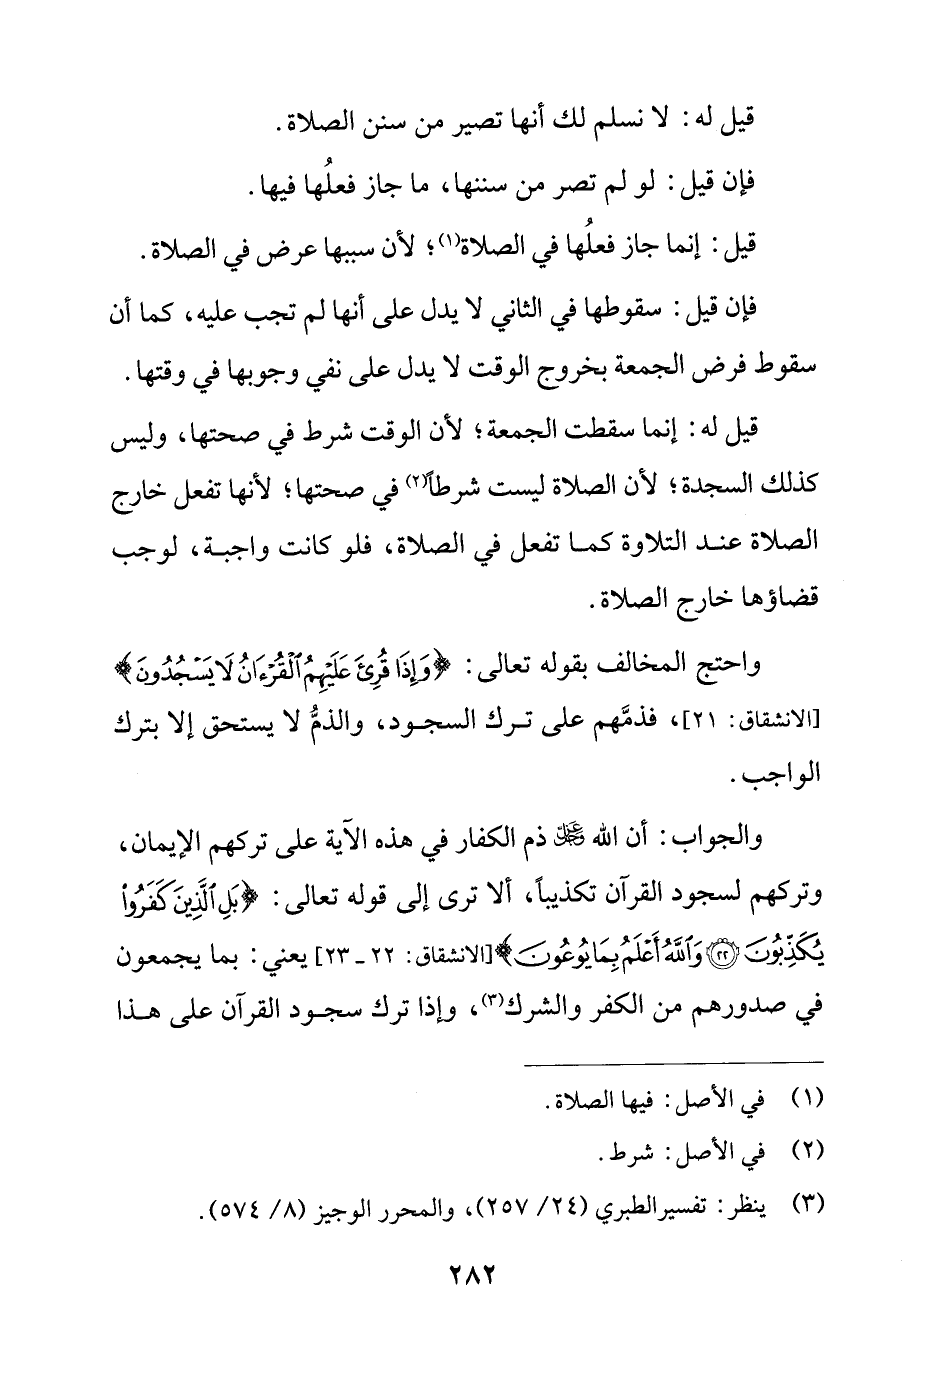 قيل له: لا نسلم لك أنها تصير من سنن الصلاة.
فإن قيل: لو لم تصر من سننها، ما جاز فعلُها فيها.
قيل: إنما جاز فعلُها في الصلاة(١)؛ لأن سببها عرض في الصلاة.
فإن قيل: سقوطها في الثاني لا يدل على أنها لم تجب عليه، كما أن
سقوط فرض الجمعة بخروج الوقت لا يدل على نفي وجوبها في وقتها.
قيل له: إنما سقطت الجمعة؛ لأن الوقت شرط في صحتها، وليس
كذلك السجدة؛ لأن الصلاة ليست شرطاً(٢) في صحتها؛ لأنها تفعل خارج
الصلاة عند التلاوة كما تفعل في الصلاة، فلو كانت واجبة، لوجب
قضاؤها خارج الصلاة.
واحتج المخالف بقوله تعالى: ﴿وَإِذَا قُرِئَ عَلَيْهِمُ ٱلْقُرْءَانُ لَا يَسْجُدُونَ﴾
[الانشقاق: ٢١]، فذمَّهم على ترك السجود، والذمُّ لا يستحق إلا بترك
الواجب.
والجواب: أن الله ﷿ ذم الكفار في هذه الآية على تركهم الإيمان،
وتركهم لسجود القرآن تكذيباً، ألا ترى إلى قوله تعالى: ﴿بَلِ ٱلَّذِينَ كَفَرُوا۟
يُكَذِّبُونَ ۝٢٢ وَٱللَّهُ أَعْلَمُ بِمَا يُوعُونَ﴾[الانشقاق: ٢٢ ـ ٢٣] يعني: بما يجمعون
في صدورهم من الكفر والشرك(٣)، وإذا ترك سجود القرآن على هذا
(١) في الأصل: فيها الصلاة.
(٢) في الأصل: شرط.
(٣) ينظر: تفسير الطبري (٢٤/ ٢٥٧)، والمحرر الوجيز (٨/ ٥٧٤).
٢٨٢